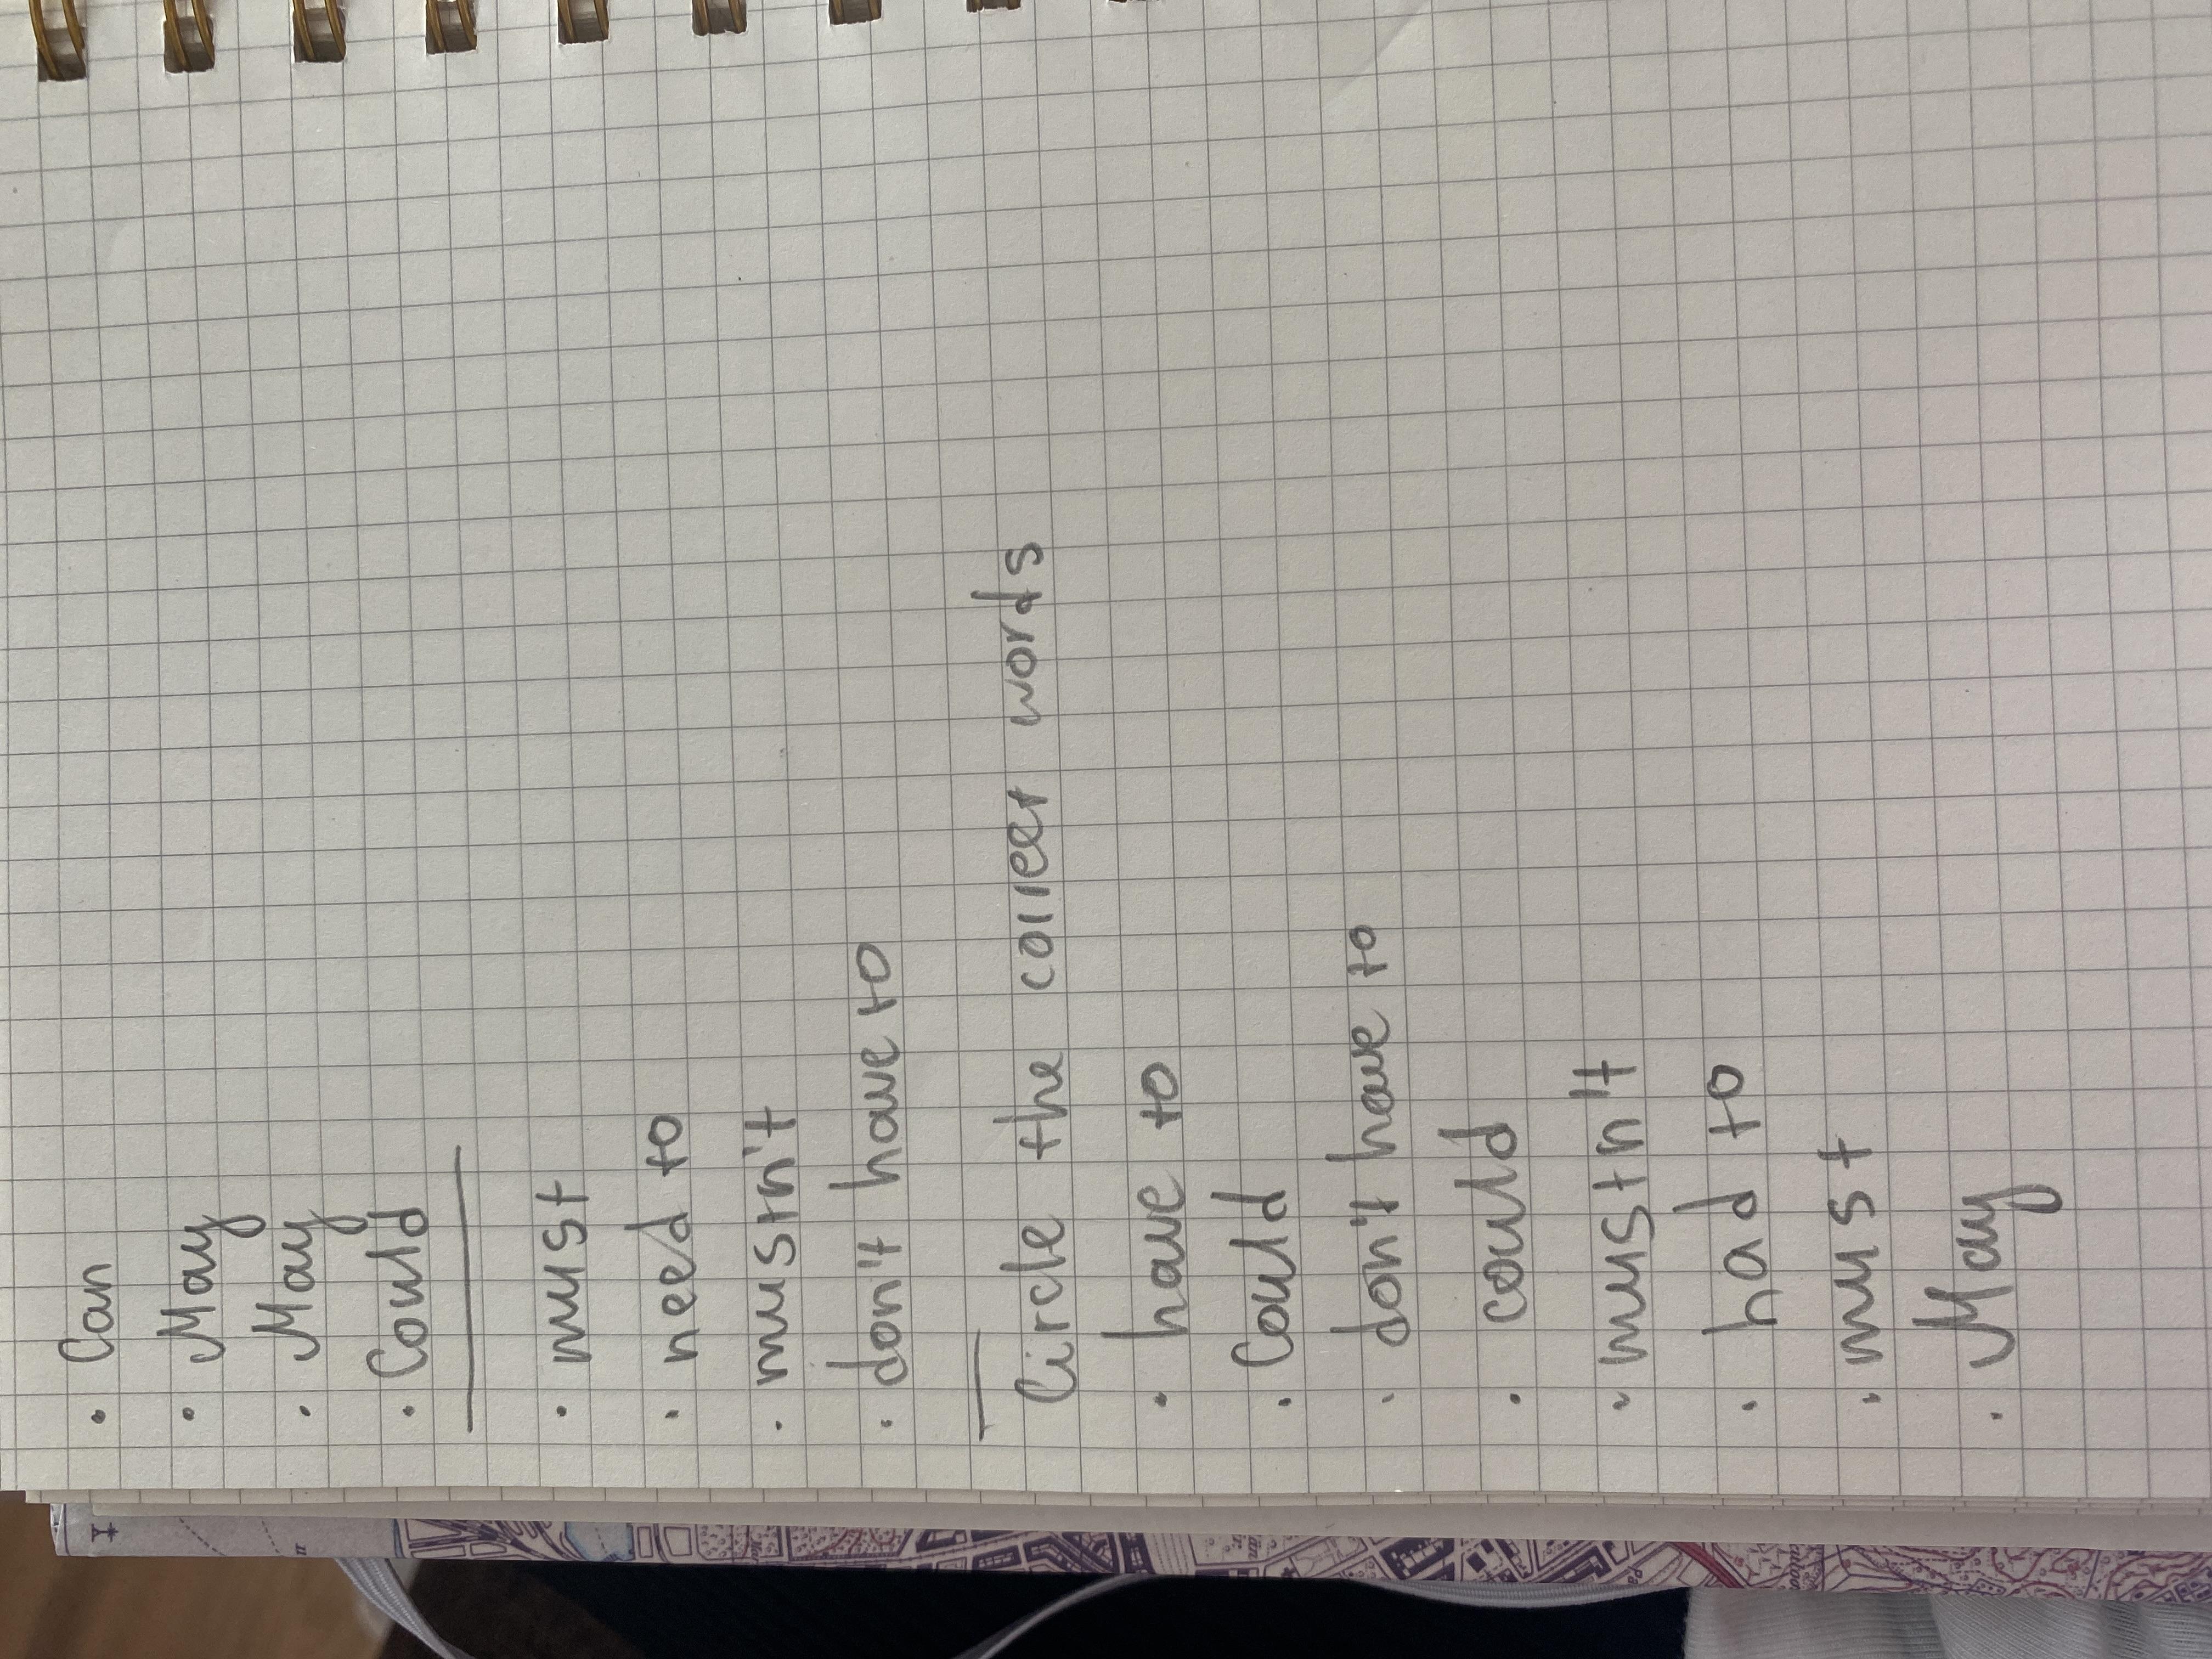 • Can
• May
• May
• Could
• must
• need to
• mustn't
• don't have to
Circle the correct words
• have to
• Could
• don't have to
• could
• mustn't
• had to
• must
• May